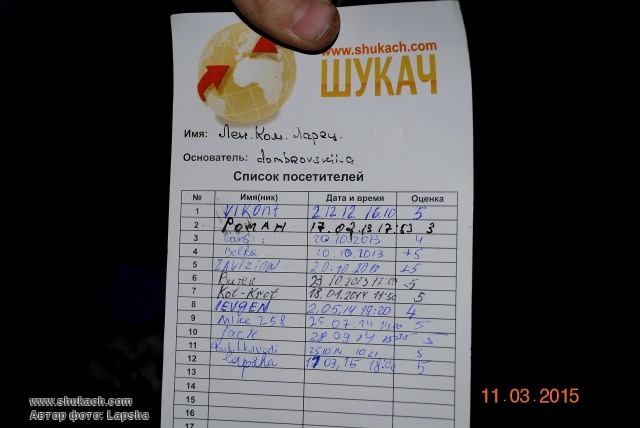 www.shukach.com
ШУКАЧ
Имя: Лен. Ком. Ларец.
Основатель: dombrovskii-a
Список посетителей
№ Имя(ник) Дата и время Оценка
1 VIKONT 2.12.12 16.10 5
2 РОМАН 17.02.13 17:53 3
3 20.10.2013 4
4 Belka 20.10.2013 +5
5 20.10.2013 +5
6 2013 17:00 5
7 Kot-Krot 18.01.2014 5
8 IEVGEN 2.05.14 19:20 4
9 Mike 258 25.07.14 5
10 Jack 28 09 14 5
11 25.10.14 5
12 Lapsha 03.15 18:00 5
13
14
15
16
17
www.shukach.com
Автор фото: Lapsha
11.03.2015